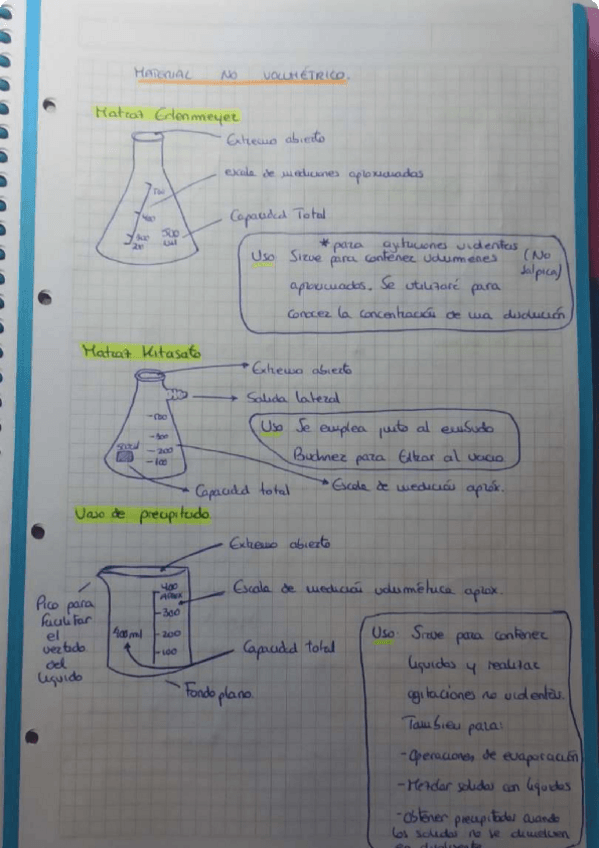 MATERIAL NO VOLUMÉTRICO.
Matraz Erlenmeyer
Extremo abierto
escala de mediciones aproximadas
Capacidad Total
400
500
ml
*para agitaciones violentas
(No salpica)
Uso: Sirve para contener volumenes
aproximados. Se utilizaré para
conocer la concentración de una disolución
Matraz Kitasato
Extremo abierto
Salida lateral
-300
-200
-100
Uso Se emplea junto al embudo
Buchner para filtrar al vacio
Escala de medición aprox.
Capacidad total
Vaso de precipitado.
Extremo abierto
Pico para
facilitar
el
vertado
del
líquido
400
APROX
-300
-200
-100
400ml
Escala de medición volumétrica aprox.
Capacidad total
Fondo plano.
Uso: Sirve para contener
líquidos y realizar
agitaciones no violentas.
Tambien para:
-Operaciones de evaporación
-Mezclar solidos con líquidos
-Obtener precipitados cuando
los solidos no se disuelven